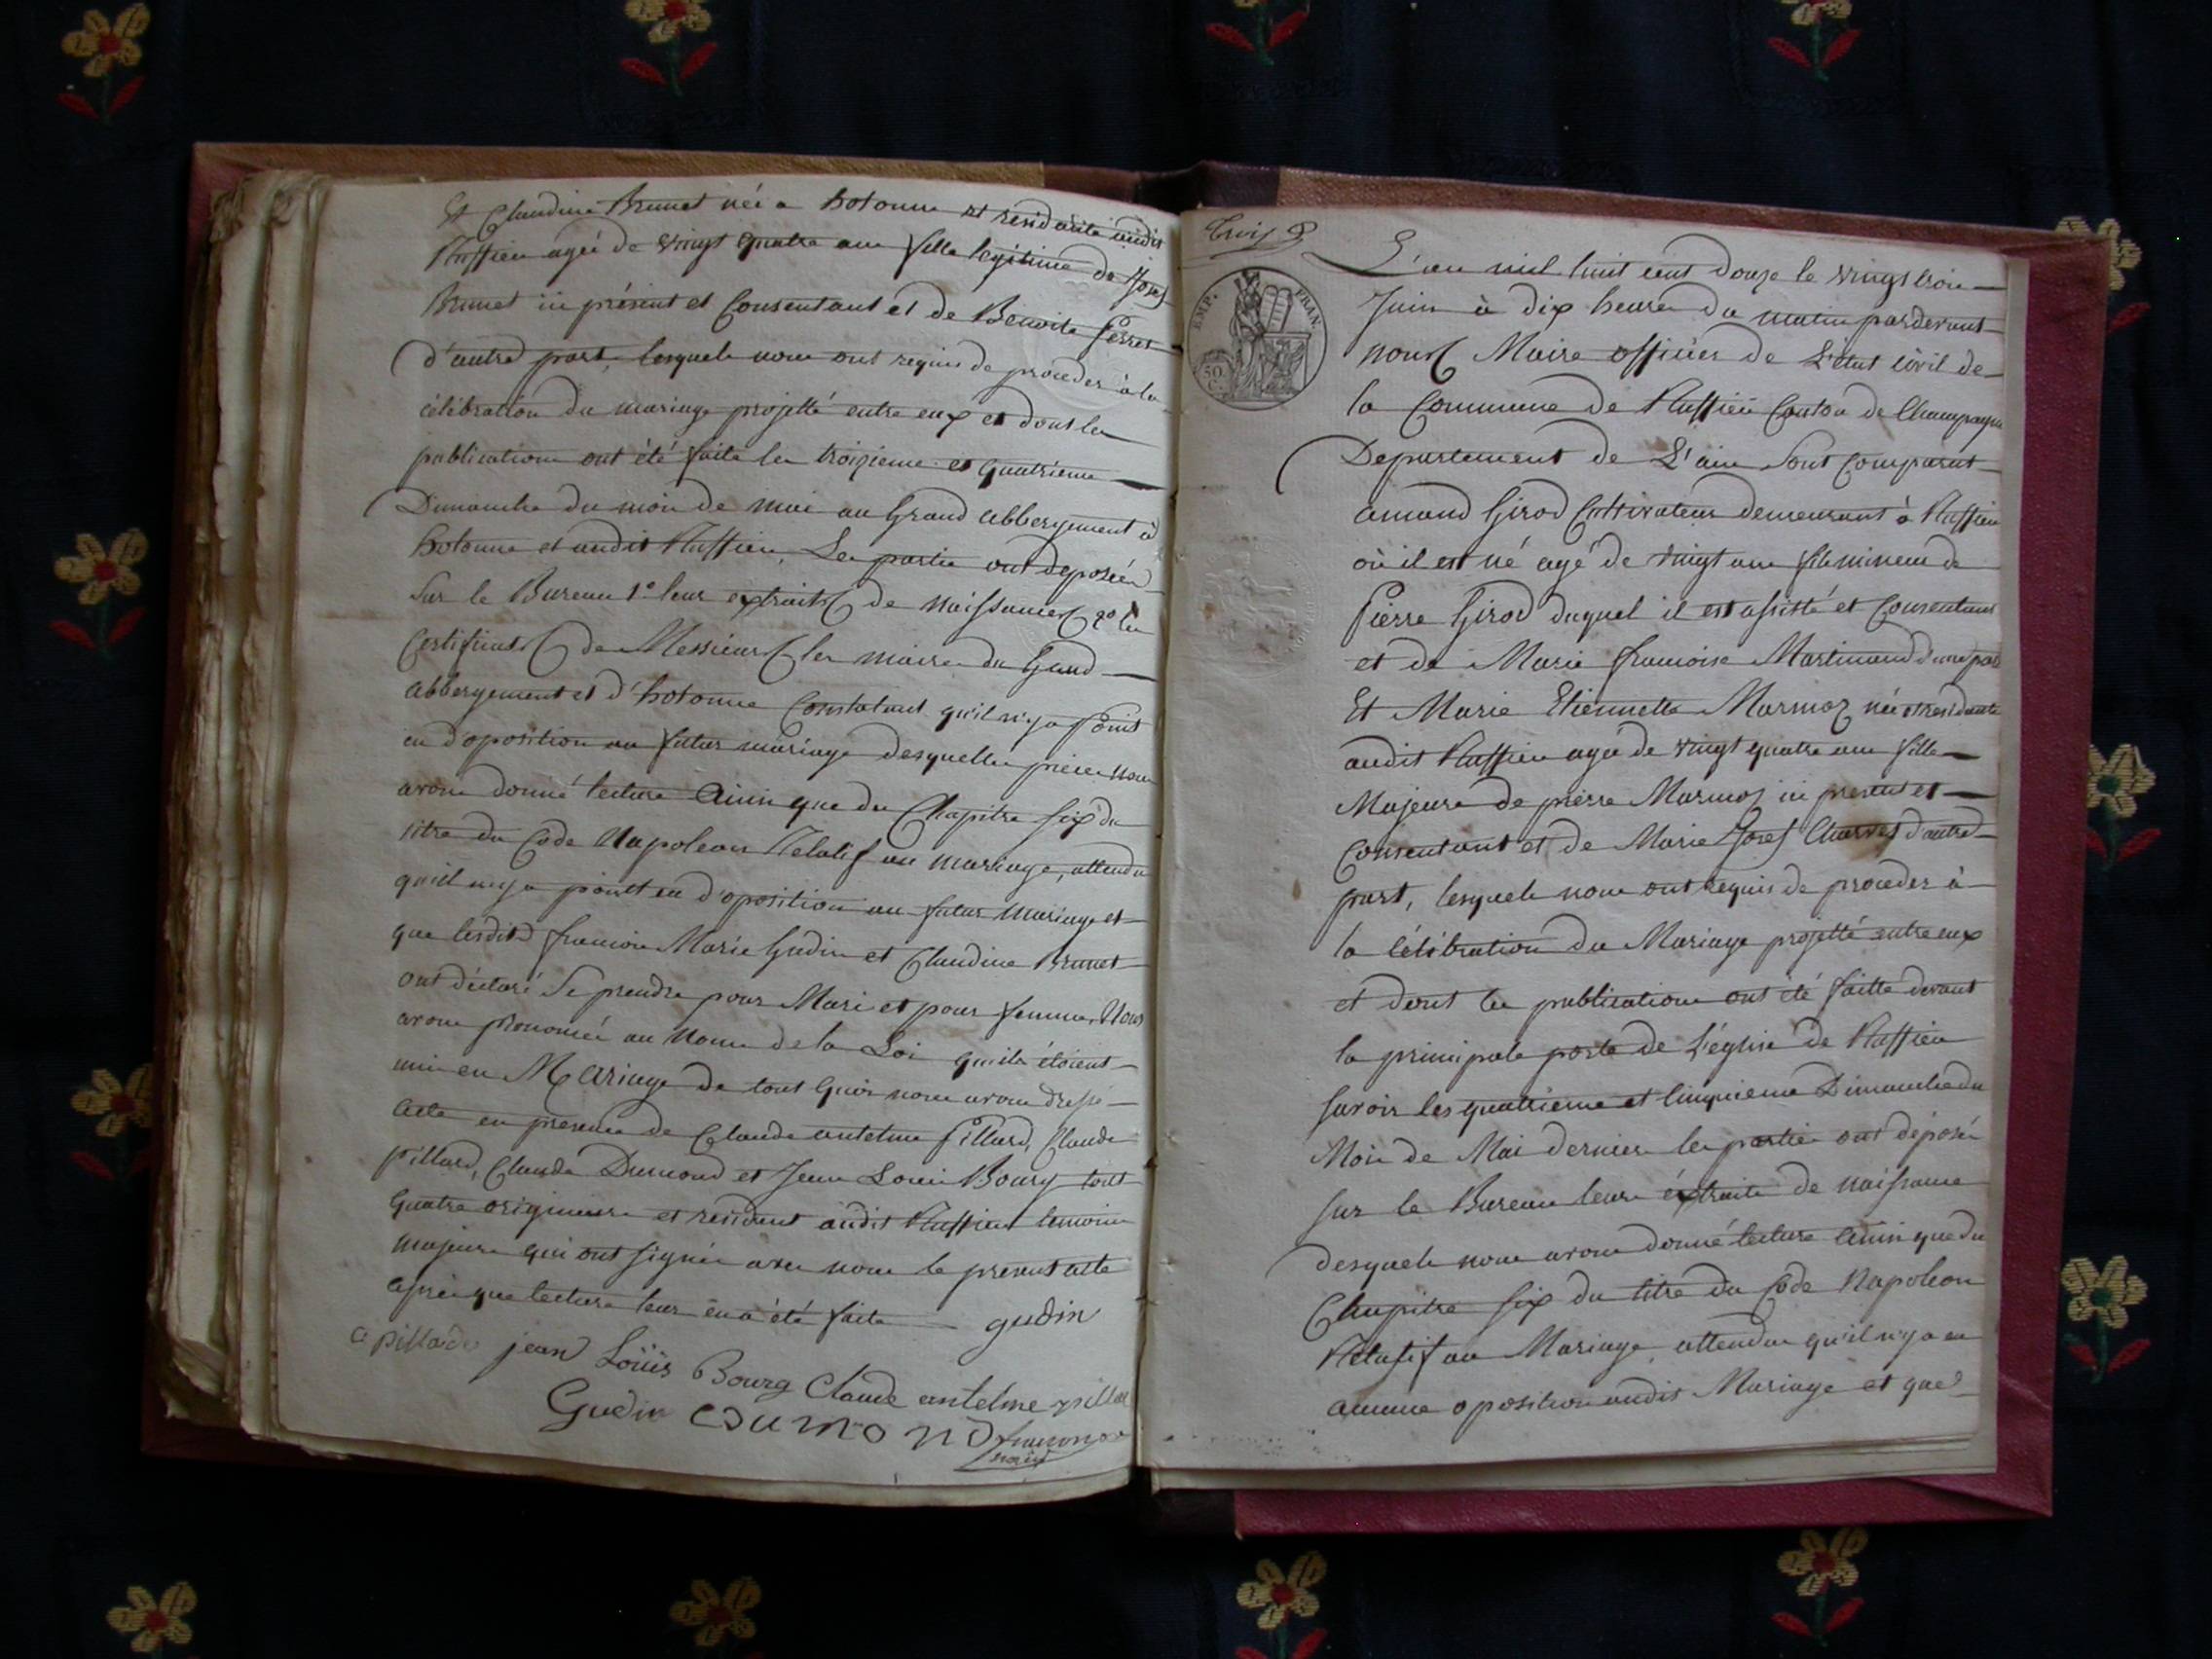 Et Claudine Brunet née a hotonne et residante audit
Ruffieu agée de vingt quatre ans fille legitime de Josef
Brunet ici présent et Consentant et de Benoite Perret
d'autre part, lesquels nous ont requis de proceder à la
célébration du mariage projetté entre eux et dont les
publications ont été faite les troizieme et quatrieme
Dimanche du mois de mai au Grand abbergement à
hotonne et audit Ruffieu, Les parties ont deposées
Sur le Bureau 1° leur extraits de naissances 2° les
Certificats de Messieurs les maires du Grand
abbergement et d'hotonne Constatant qu'il n'y a point
eu d'oposition au futur mariage desquelles pièces nous
avons donné lecture Ainsi que du Chapitre six du
titre du Code Napoleon Relatif au mariage, attendu
qu'il n'y a point eu d'oposition au futur mariage et
que lesdits francois Marie Gudin et Claudine Brunet
ont déclaré Se prendre pour Mari et pour femme, Nous
avons prononcé au Nom de la Loi qu'ils étoient
unis en Mariage de tout quoi nous avons dressé
acte en presence de Claude antelme Pillard, Claude
pillard, Claude Dumond et Jean Louis Bourg tout
quatre originaire et residant audit Ruffieu temoins
majeurs qui ont signés avec nous le present acte
après que lecture leur en a été faite gudin
C pillard jean Loüis Bourg Claude antelme pillar
Gudin Dumond
maire
Trois
EMP. FRAN.
50 C.
L'an mil huit cent douze le vingt trois
Juin à dix heures du matin pardevant
nous Maire officier de L'état civil de
la Commune de Ruffieu Canton de Champagne
Departement de L'ain Sont Comparut
amand Girod Cultivateur demeurant à Ruffieu
où il est né agé de vingt ans fils mineur de
Pierre Girod duquel il est assisté et Consentant
et de Marie francoise Martinand d'une part
Et Marie Etiennette Marmoz née et residante
audit Ruffieu agée de vingt quatre ans fille
Majeure de pierre Marmoz ici present et
Consentant et de Marie Josef Charvet d'autre
part, lesquels nous ont requis de proceder à
la Célébration du Mariage projetté entre eux
et dont les publications ont été faitte devant
la principale porte de L'églisé de Ruffieu
savoir les quatrieme et Cinquieme Dimanche du
Mois de Mai dernier les parties ont déposé
sur le Bureau leurs éxtraits de naissance
desquels nous avons donné lecture Ainsi que du
Chapitre six du titre du Code Napoleon
Relatif au Mariage, attendu qu'il n'y a eu
aucune oposition audit Mariage et que